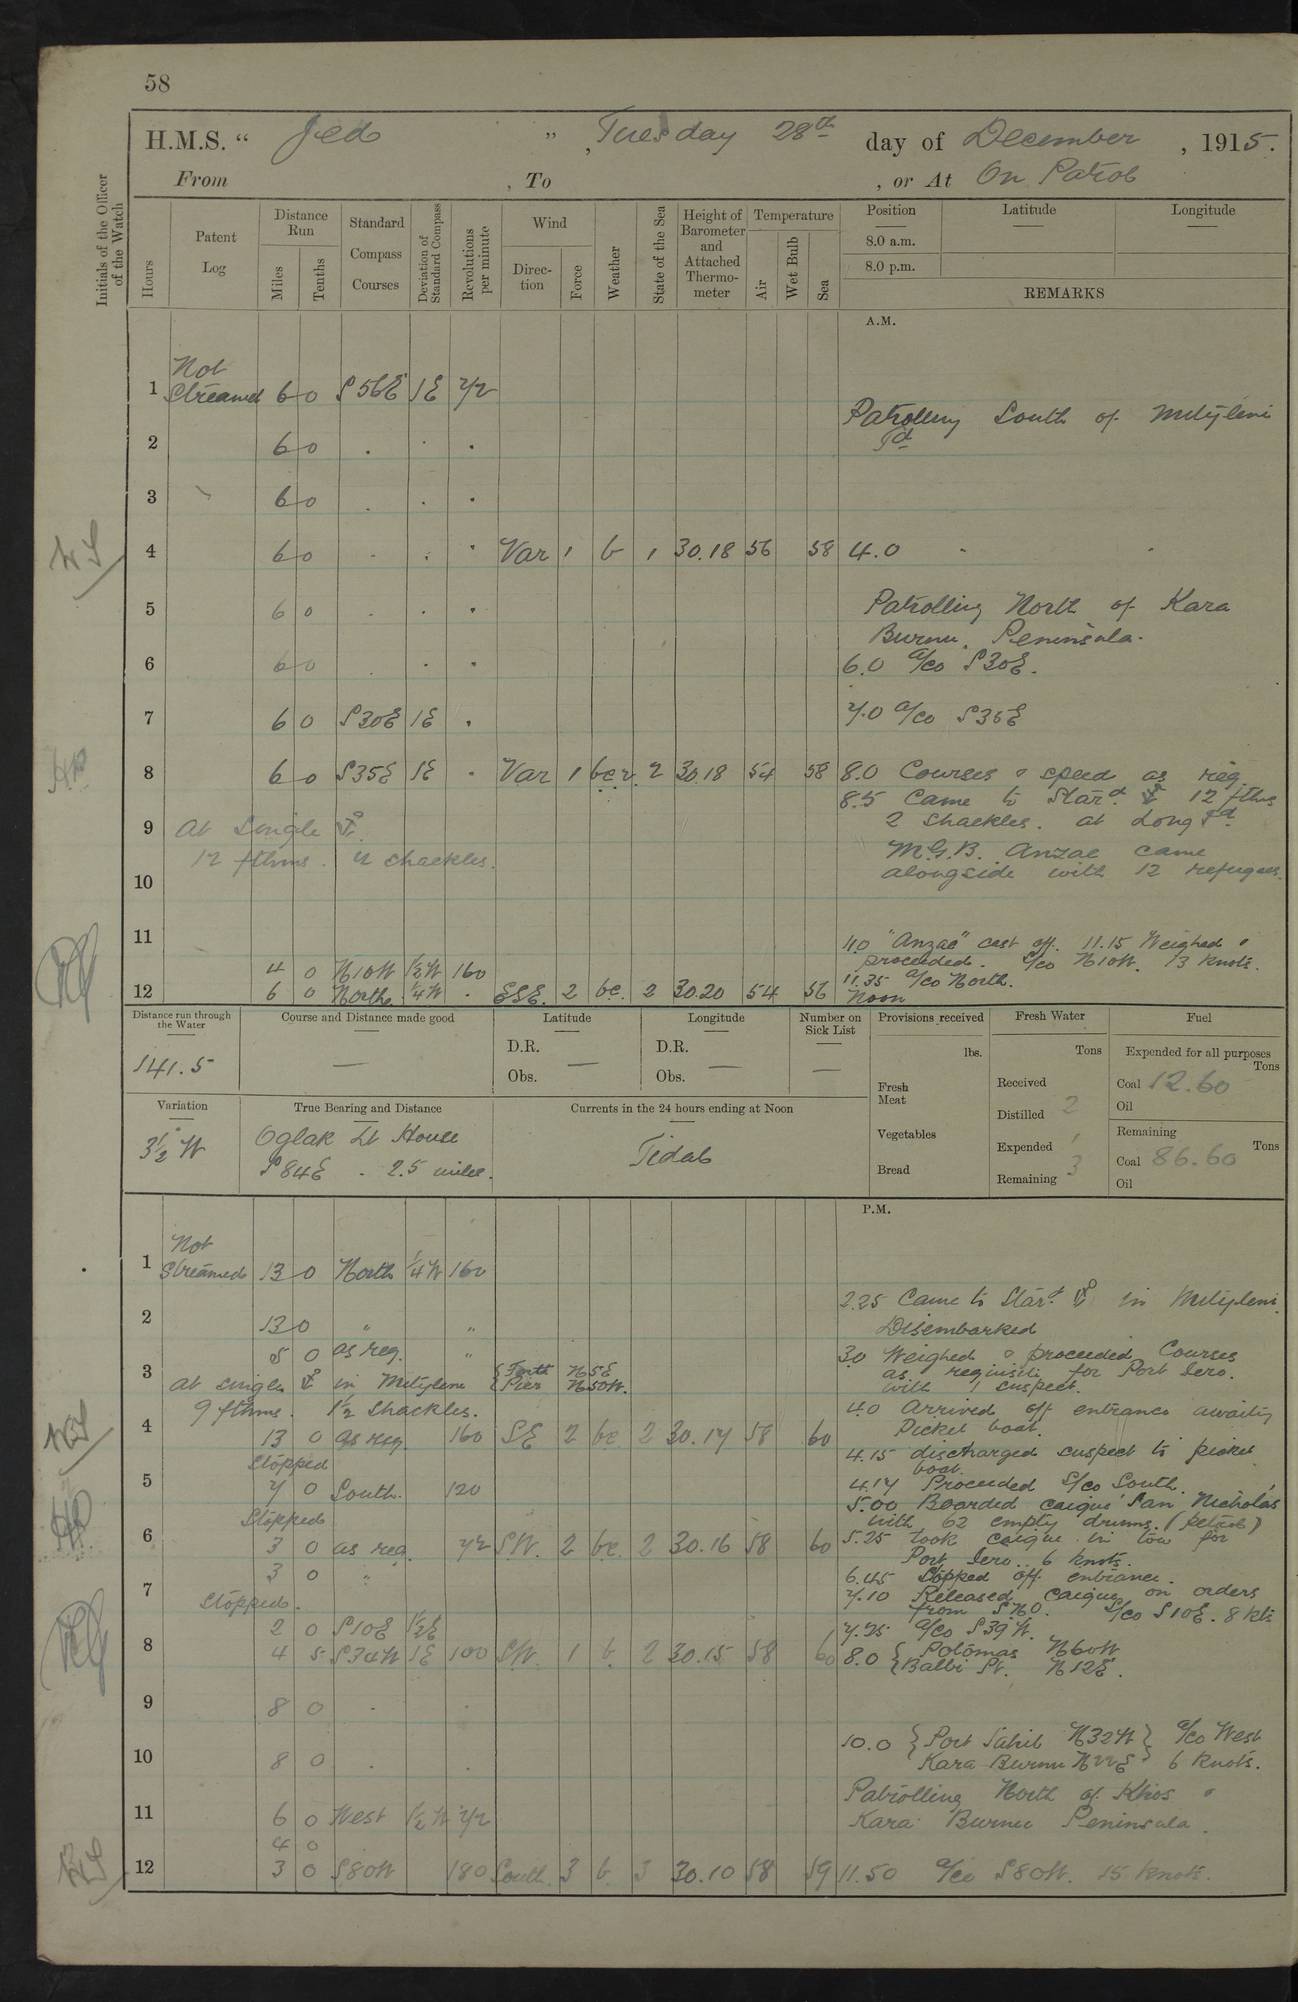 58
H.M.S. “ Jed ” , Tuesday 28th day of December , 1915.
From , To , or At On Patrol
Initials of the Officer of the Watch
Hours
Patent Log
Distance Run
Miles
Tenths
Standard Compass Courses
Deviation of Standard Compass
Revolutions per minute
Wind
Direc-tion
Force
Weather
State of the Sea
Height of Barometer and Attached Thermo-meter
Temperature
Air
Wet Bulb
Sea
Position Latitude Longitude
8.0 a.m.
8.0 p.m.
REMARKS
A.M.
Not
1 Streamed 6 0 S56E 1E 72
Patrolling South of Mityleni
Id
2 6 0 . . .
3 6 0 . . .
4 6 0 . . . Var 1 b 1 30.18 56 58 4.0
5 6 0 . . . Patrolling North of Kara
Burnu Peninsula.
6 6 0 . . 6.0 a/co S30E.
7 6 0 S30E 1E . 7.0 a/co S35E
8 6 0 S35E 1E . Var 1 bcv 2 30.18 54 58 8.0 Courses & speed as req.
8.5 Came to Stard ⚓ 12 fthms
9 At Single ⚓ 2 shackles. at Long Id
12 fthms. 2 shackles. M.G.B. Anzac came
10 alongside with 12 refugees.
11 11.0 "Anzac" cast off. 11.15 Weighed &
4 0 N10W 1/2W 160 proceeded. S/co N10W. 13 knots.
11.35 a/co North.
12 6 0 North 1/4W . ESE. 2 bc. 2 30.20 54 56 Noon
Distance run through the Water
Course and Distance made good
Latitude
Longitude
Number on Sick List
Provisions received
Fresh Water
Fuel
141.5 —
D.R.
Obs. —
D.R.
Obs. —
—
lbs.
Fresh Meat
Vegetables
Bread
Tons
Received
Distilled 2
Expended 1
Remaining 3
Expended for all purposes
Tons
Coal 12.60
Oil
Remaining
Tons
Coal 86.60
Oil
Variation
True Bearing and Distance
Currents in the 24 hours ending at Noon
3½° W
Oglak Lt House
S84E . 2.5 miles.
Tidal
P.M.
Not
1 Streamed 13 0 North 1/4W 160
2.25 Came to Stard ⚓ in Mityleni.
2 13 0 " " Disembarked
5 0 as req. " 3.0 Weighed & proceeded Courses
3 { Forth N5E as requisite for Port Iero.
At single ⚓ in Mitylene { Pier N50W. with 1 suspect.
9 fthms. 1½ Shackles. 4.0 Arrived off entrance awaiting
4 13 0 as req. 160 SE 2 bc 2 30.14 58 60 Picket boat.
Stopped 4.15 discharged suspect to picket
boat.
5 7 0 South. 120 4.17 Proceeded S/co South.
5.00 Boarded caique 'San Nicholas'
Stopped with 62 empty drums. (petrol)
6 3 0 as req. 72 SW. 2 bc. 2 30.16 58 60 5.25 took caique in tow for
Port Iero. 6 knots.
3 0 " 6.45 Stopped off entrance.
7 Stopped. 7.10 Released caique on orders
from SNO. S/co S10E. 8 kts
2 0 S10E 1/2E 7.25 a/co S39W.
8 4 5 S34W 1E 100 SW. 1 b. 2 30.15 58 60 8.0 { Potomas N60W
{ Balbi Pt. N12E.
9 8 0 . .
10.0 { Port Sahib N32W } a/co West
10 8 0 . . Kara Burnu N22E } 6 knots.
Patrolling North of Khios &
11 6 0 West 1/2W 72 Kara Burnu Peninsula.
4 0
12 3 0 S80W 180 South. 3 b. 3 30.10 58 59 11.50 a/co S80W. 15 knots.